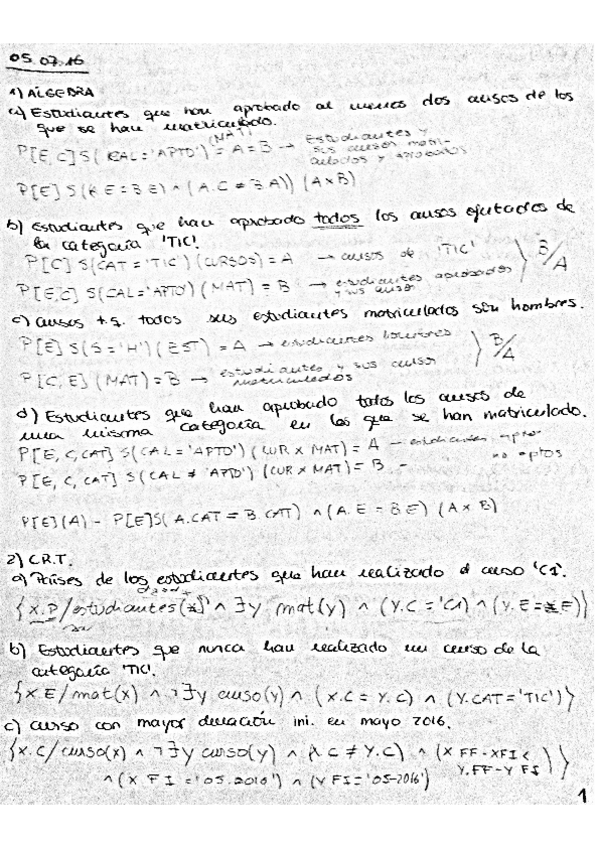 05.07.16
1) ALGEBRA
a) Estudiantes que han aprobado al menos dos cursos de los
que se han matriculado.
P[E,C] S( CAL='APTO') (MAT) = A = B → Estudiantes y
sus cursos matri-
culados y aprobados
P[E] S(A.E = B.E) ∧ (A.C ≠ B.A)) (A×B)
b) Estudiantes que han aprobado todos los cursos ofertados de
la categoría 'TIC'.
P[C] S(CAT = 'TIC') (CURSOS) = A → cursos de 'TIC' B/A
P[E,C] S(CAL='APTO') (MAT) = B → estudiantes aprobados
y sus cursos
c) Cursos t.q. todos sus estudiantes matriculados son hombres.
P[E] S(S='H') (EST) = A → estudiantes hombres
P[C,E] (MAT) = B → estudiantes y sus cursos B/A
matriculados
d) Estudiantes que han aprobado todos los cursos de
una misma categoría en los que se han matriculado.
P[E,C,CAT] S(CAL = 'APTO') (CUR × MAT) = A — estudiantes aptos
P[E,C,CAT] S(CAL ≠ 'APTO') (CUR × MAT) = B — no aptos
P[E](A) - P[E]S(A.CAT = B.CAT) ∧ (A.E = B.E) (A × B)
2) C.R.T.
a) Países de los estudiantes que han realizado el curso 'C1'.
{X.P/estudiantes(x) ∧ ∃y mat(y) ∧ (Y.C = 'C1) ∧ (Y.E = X.E)}
b) Estudiantes que nunca han realizado un curso de la
categoría 'TIC'.
{X.E/mat(x) ∧ ¬∃y curso(y) ∧ (X.C = Y.C) ∧ (Y.CAT='TIC')}
c) Curso con mayor duración ini. en mayo 2016.
{X.C/curso(x) ∧ ¬∃y curso(y) ∧ (X.C ≠ Y.C) ∧ (X FF-XFI <
Y.FF-Y FI)
∧ (X FI = '05.2016') ∧ (Y FI='05-2016')}
1